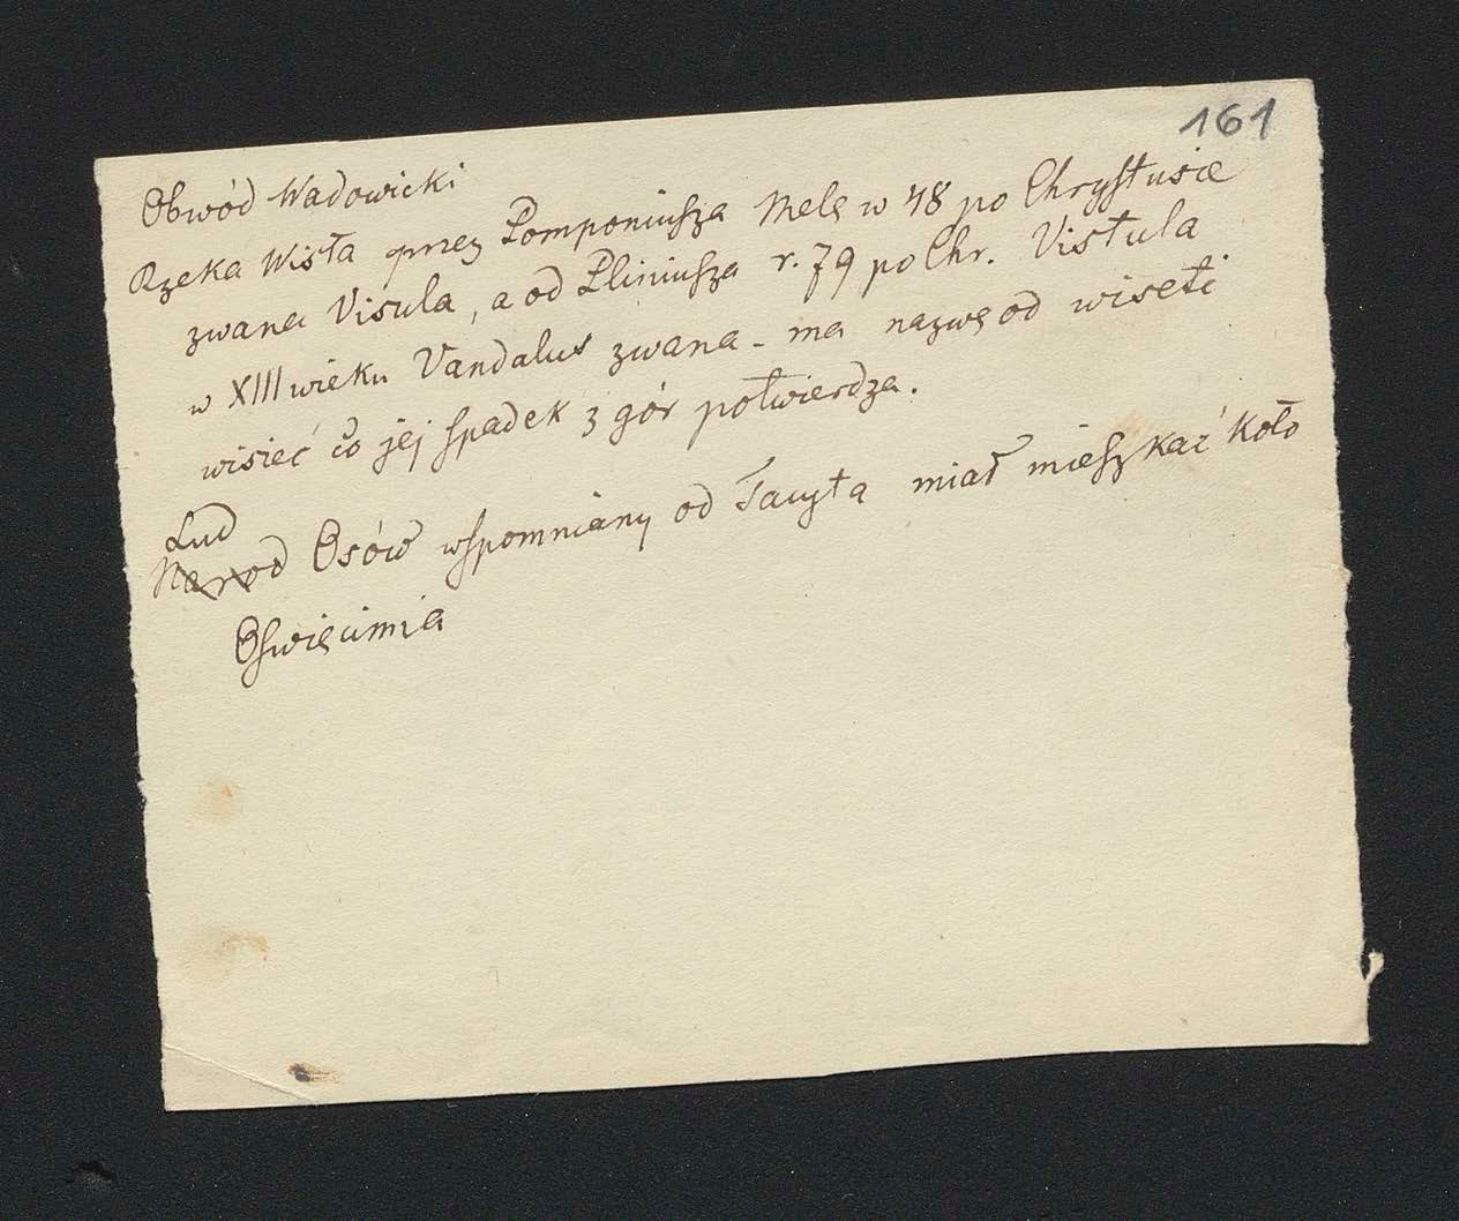 161
Obwód Wadowicki
Rzeka Wisła przez Pomponiusza Melę w 48 po Chrystusie
zwana Visula, a od Pliniusza r. 79 po Chr. Vistula
w XIII wieku Vandalus zwana - ma nazwę od wiseti
wisieć co jej spadek z gór potwierdza.
Lud
Narod Osów wspomniany od Tacyta miał mieszkać koło
Oswięcimia